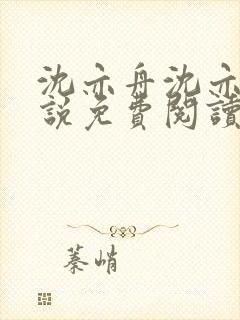 沈亦舟沈亦
說免費閱讀
蓁峭